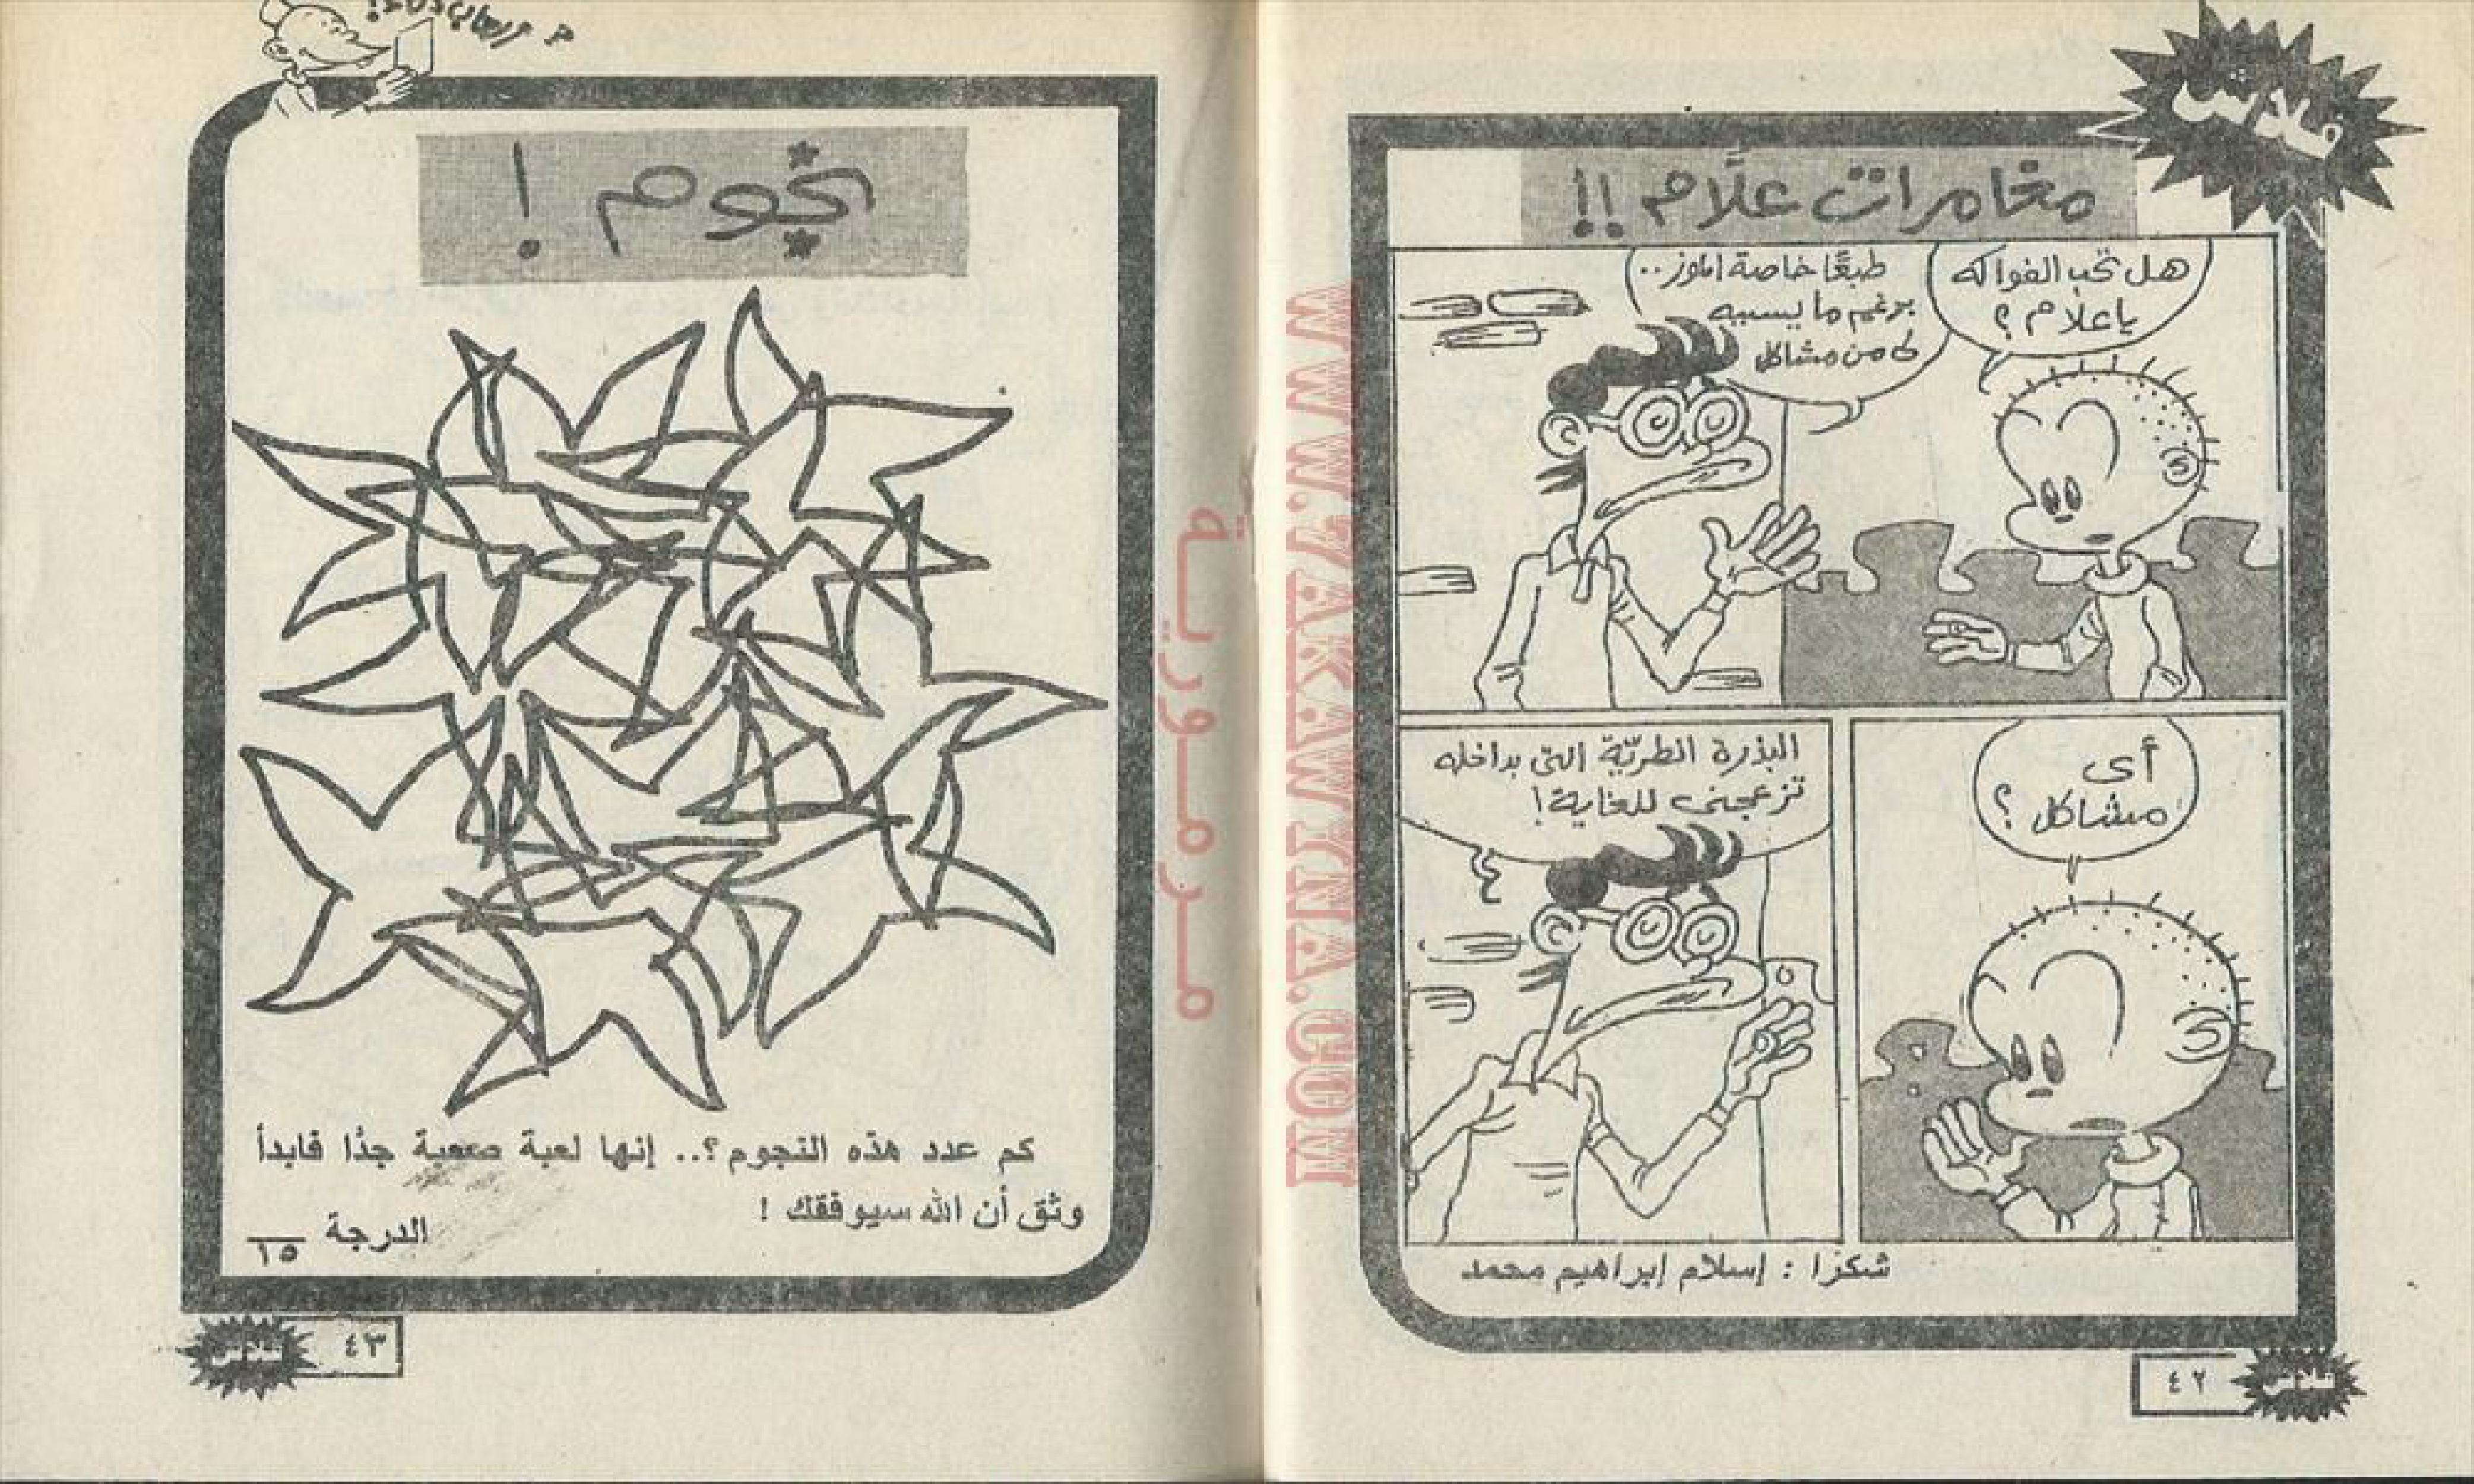 فلاش
مغامرات علَّام !!
هل تحب الفواكه
ياعلام ؟
طبعًا خاصة الموز..
برغم ما يسببه
لى من مشاكل
أى
مشاكل ؟
البذرة الطريّة التى بداخله
تزعجنى للغاية !
شكرًا : إسلام إبراهيم محمد
٤٢
فلاش
WWW.7AKAWINA.COM
مرمورية
نجوم !
كم عدد هذه النجوم ؟.. إنها لعبة صعبة جدًّا فابدأ
وثق أن الله سيوفقك !
الدرجة ١٥
٤٣
فلاش